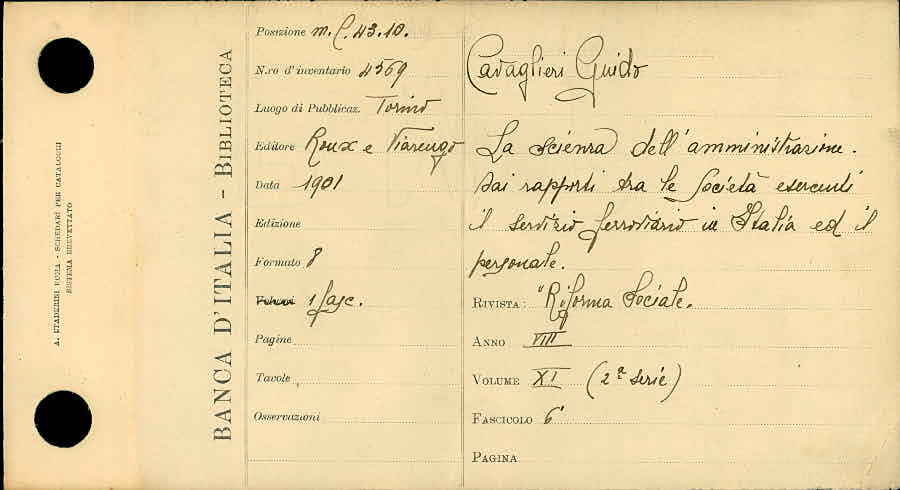 A. STADERINI ROMA - SCHEDARI PER CATALOGHI
SISTEMA BREVETTATO
BANCA D'ITALIA - BIBLIOTECA
Posizione m. C. 43.10.
N.ro d'inventario 4569
Luogo di Pubblicaz. Torino
Editore Roux e Viarengo
Data 1901
Edizione
Formato 8
Volumi 1 fasc.
Pagine
Tavole
Osservazioni
Cavaglieri Guido
La scienza dell'amministrazione.
Dai rapporti tra le Società esercenti
il servizio ferroviario in Italia ed il
personale.
RIVISTA: "Riforma Sociale.
ANNO VIII
VOLUME XI (2ª serie)
FASCICOLO 6°
PAGINA